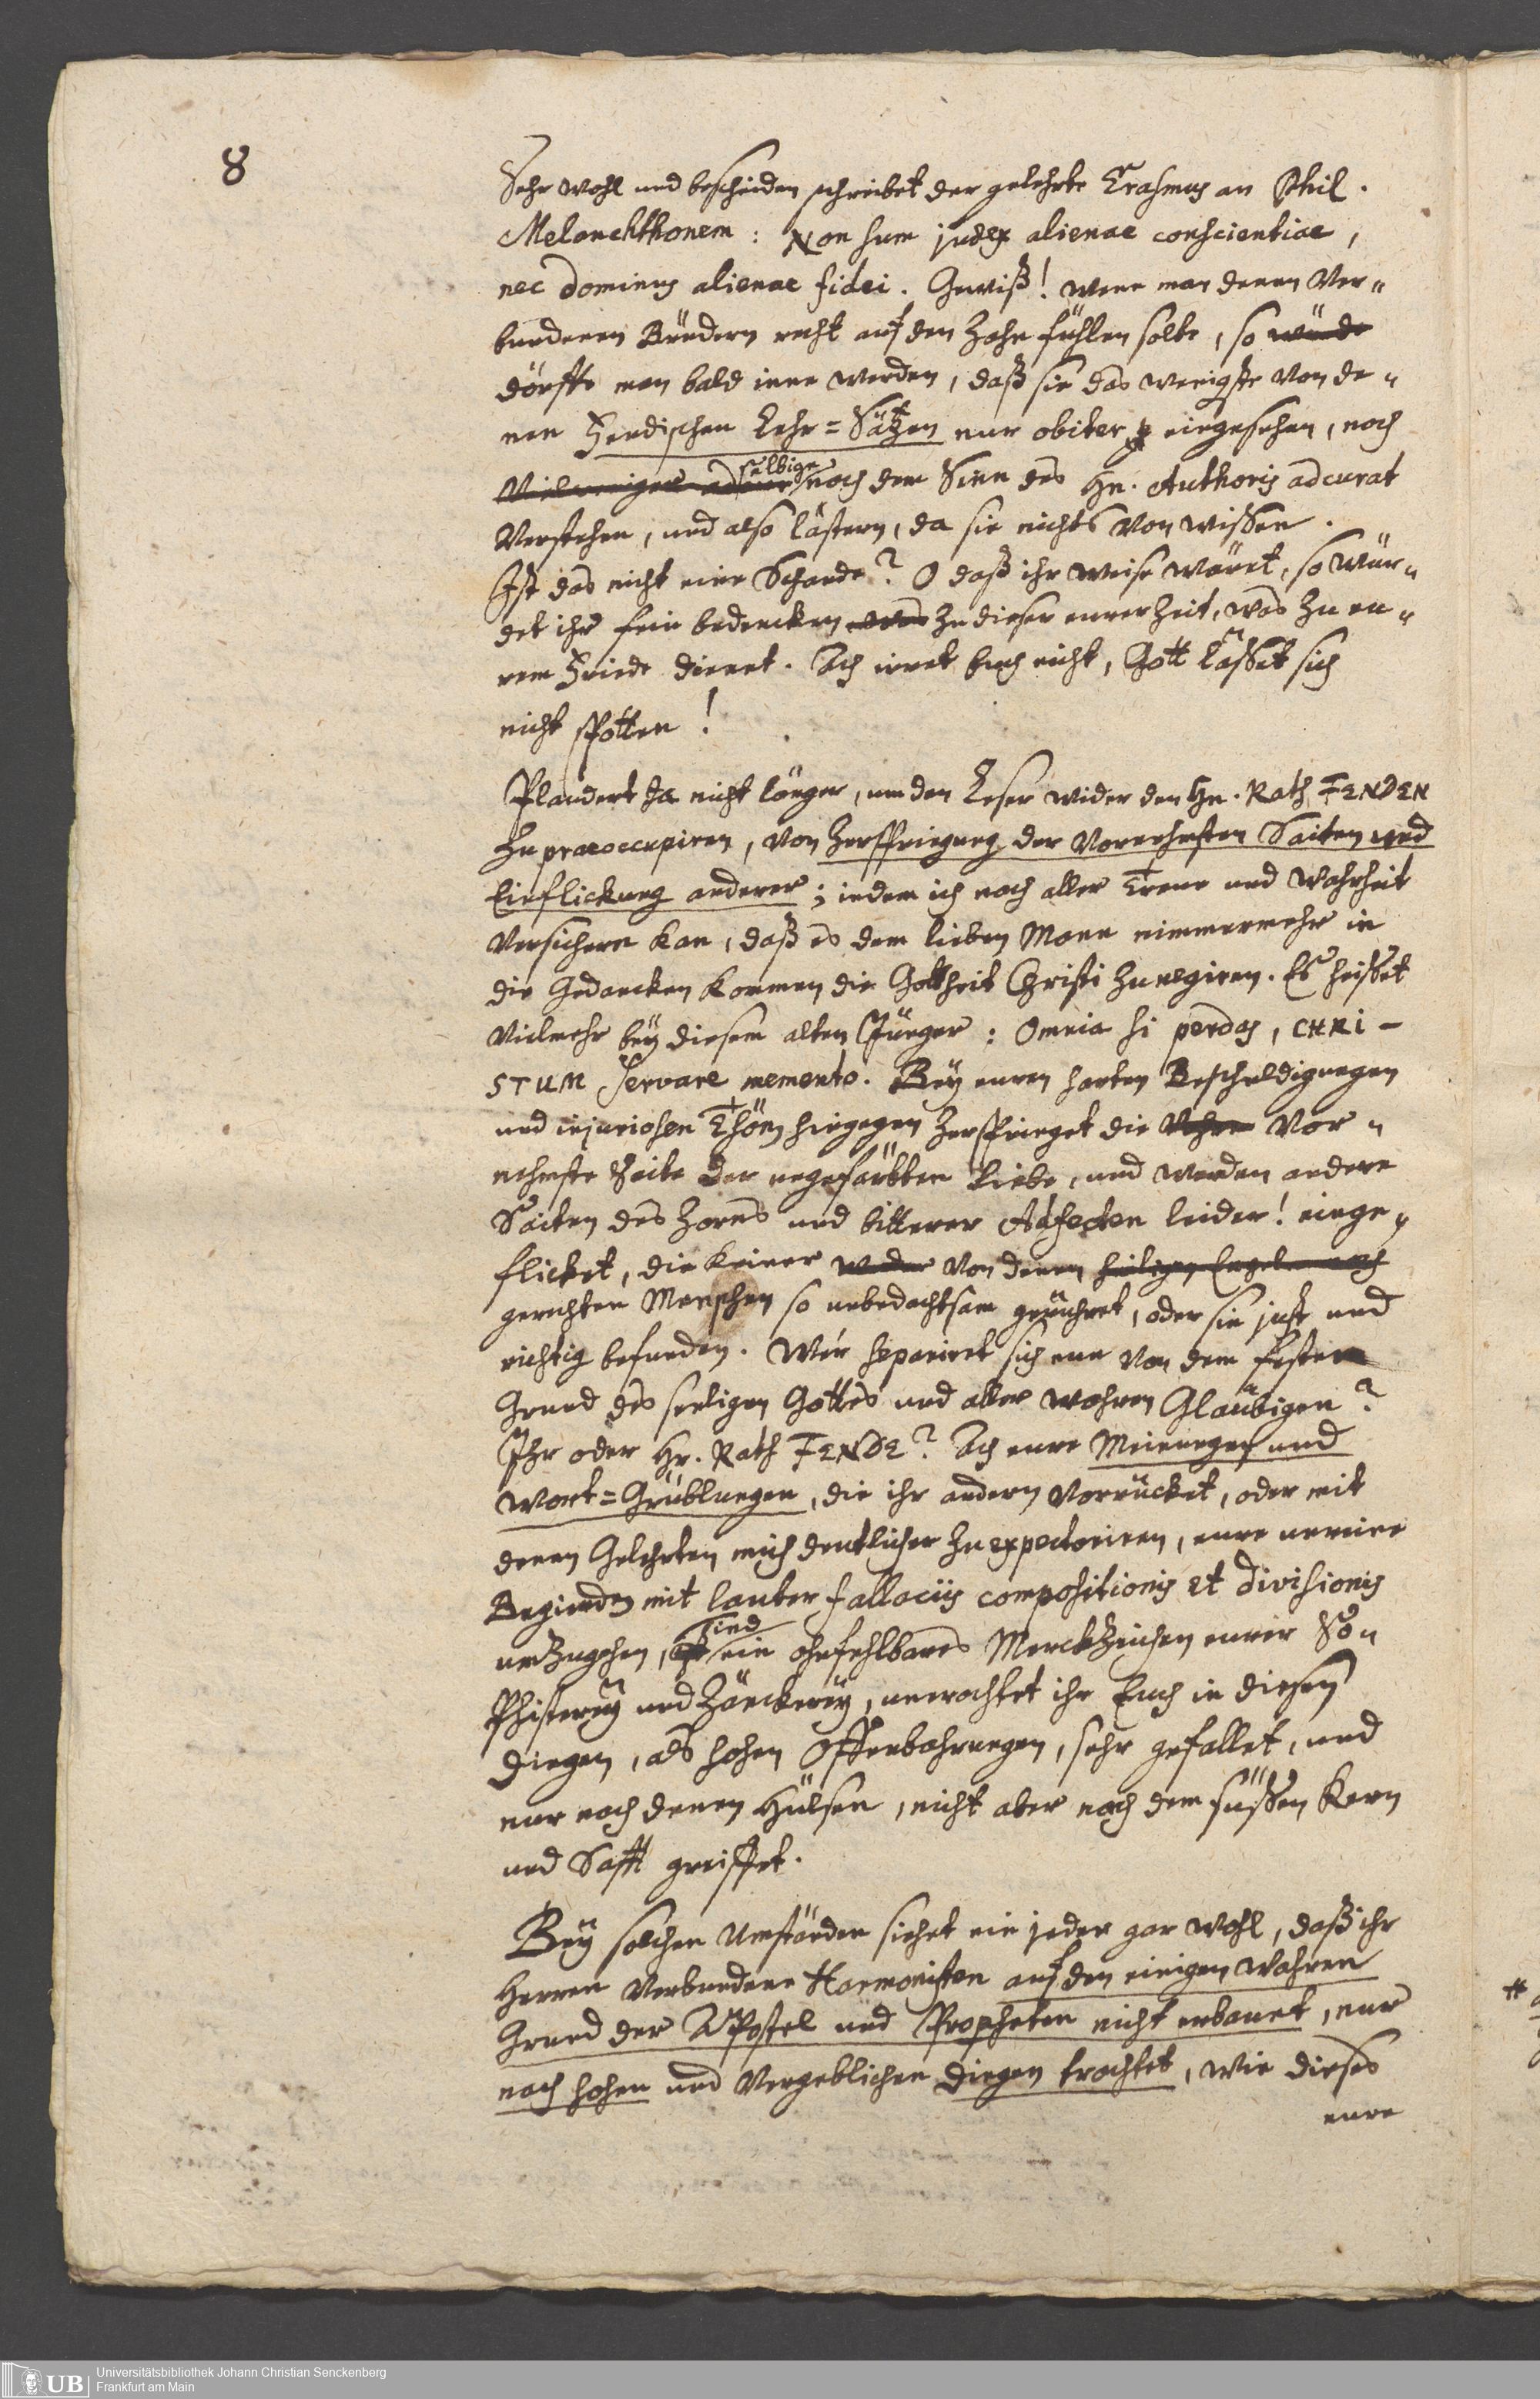 8
Sehr wohl und bescheiden schreibet der gelehrte Erasmus an Phil.
Melanchthonem: Non sum judex alienae conscientiae,
nec dominus alienae fidei. Gewiß! wenn man denen Ver-
bundenen Brüdern recht auf den Zahn fühlen solte, so würde
dörffte man bald inne werden, daß sie das wenigste von de-
nen Fendischen Lehr=Sätzen nur obiter eingesehen, noch
Vielweniger selbige nach dem Sinn des Hn. Authoris adcurat
verstehen, und also lästern, da sie nichts von wissen.
Ist das nicht eine Schande? O daß ihr weise wäret, so wür-
det ihr fein bedencken was zu dieser eurer Zeit, was zu eu-
rem Friede dienet. Ach irret Euch nicht, Gott lässet sich
nicht spotten!
Plaudert ja nicht länger, um den Leser wider den Hn. Rath FENDEN
zu praeoccupiren, von Zerspringung der vornehmsten Saiten und
Einflickung anderer; indem ich nach aller Treue und Wahrheit
versichern kan, daß es dem lieben Mann nimmermehr in
die Gedancken kommen die Gottheit Christi zu negiren. Es heisset
vielmehr bey diesem alten Jünger: Omnia si perdas, CHRI-
STUM servare memento. Bey euren harten Beschuldigungen
und injuriosen Thön hingegen zerspringet die Vor-
nehmste Seite der ungefärbten Liebe, und werden andere
Saiten des Zorns und bitterer Adfecten leider! einge-
flicket, die keiner weder von denen heiligen Engeln noch
gerechten Menschen so unbedachtsam gerühret, oder sie just und
richtig befunden. Wer separiret sich nun von dem festen
Grund des seeligen Gottes und aller wahren Gläubigen?
Ihr oder Hr. Rath FENDE? Ach eure Meinungen und
Wort=Grüblungen, die ihr andern vorrücket, oder mit
denen Gelehrten mich deutlicher zu expectoriren, eure unreine
Begierden mit lauter fallaciis compositionis et divisionis
umzugehen, sind ein ohnfehlbares Merckzeichen eurer So-
phisterey und Zänckerey, unerachtet ihr Euch in diesen
Dingen, als hohen Offenbahrungen, sehr gefallet, und
nur nach denen Hülsen, nicht aber nach dem süssen Kern
und Safft greiffet.
Bey solchen Umständen siehet ein jeder gar wohl, daß ihr
Herren Verbundene Harmonisten auf den einigen wahren
Grund der Apostel und Propheten nicht erbauet, nur
nach hohen und vergeblichen Dingen trachtet, wie dieses
eure
UB Universitätsbibliothek Johann Christian Senckenberg
Frankfurt am Main